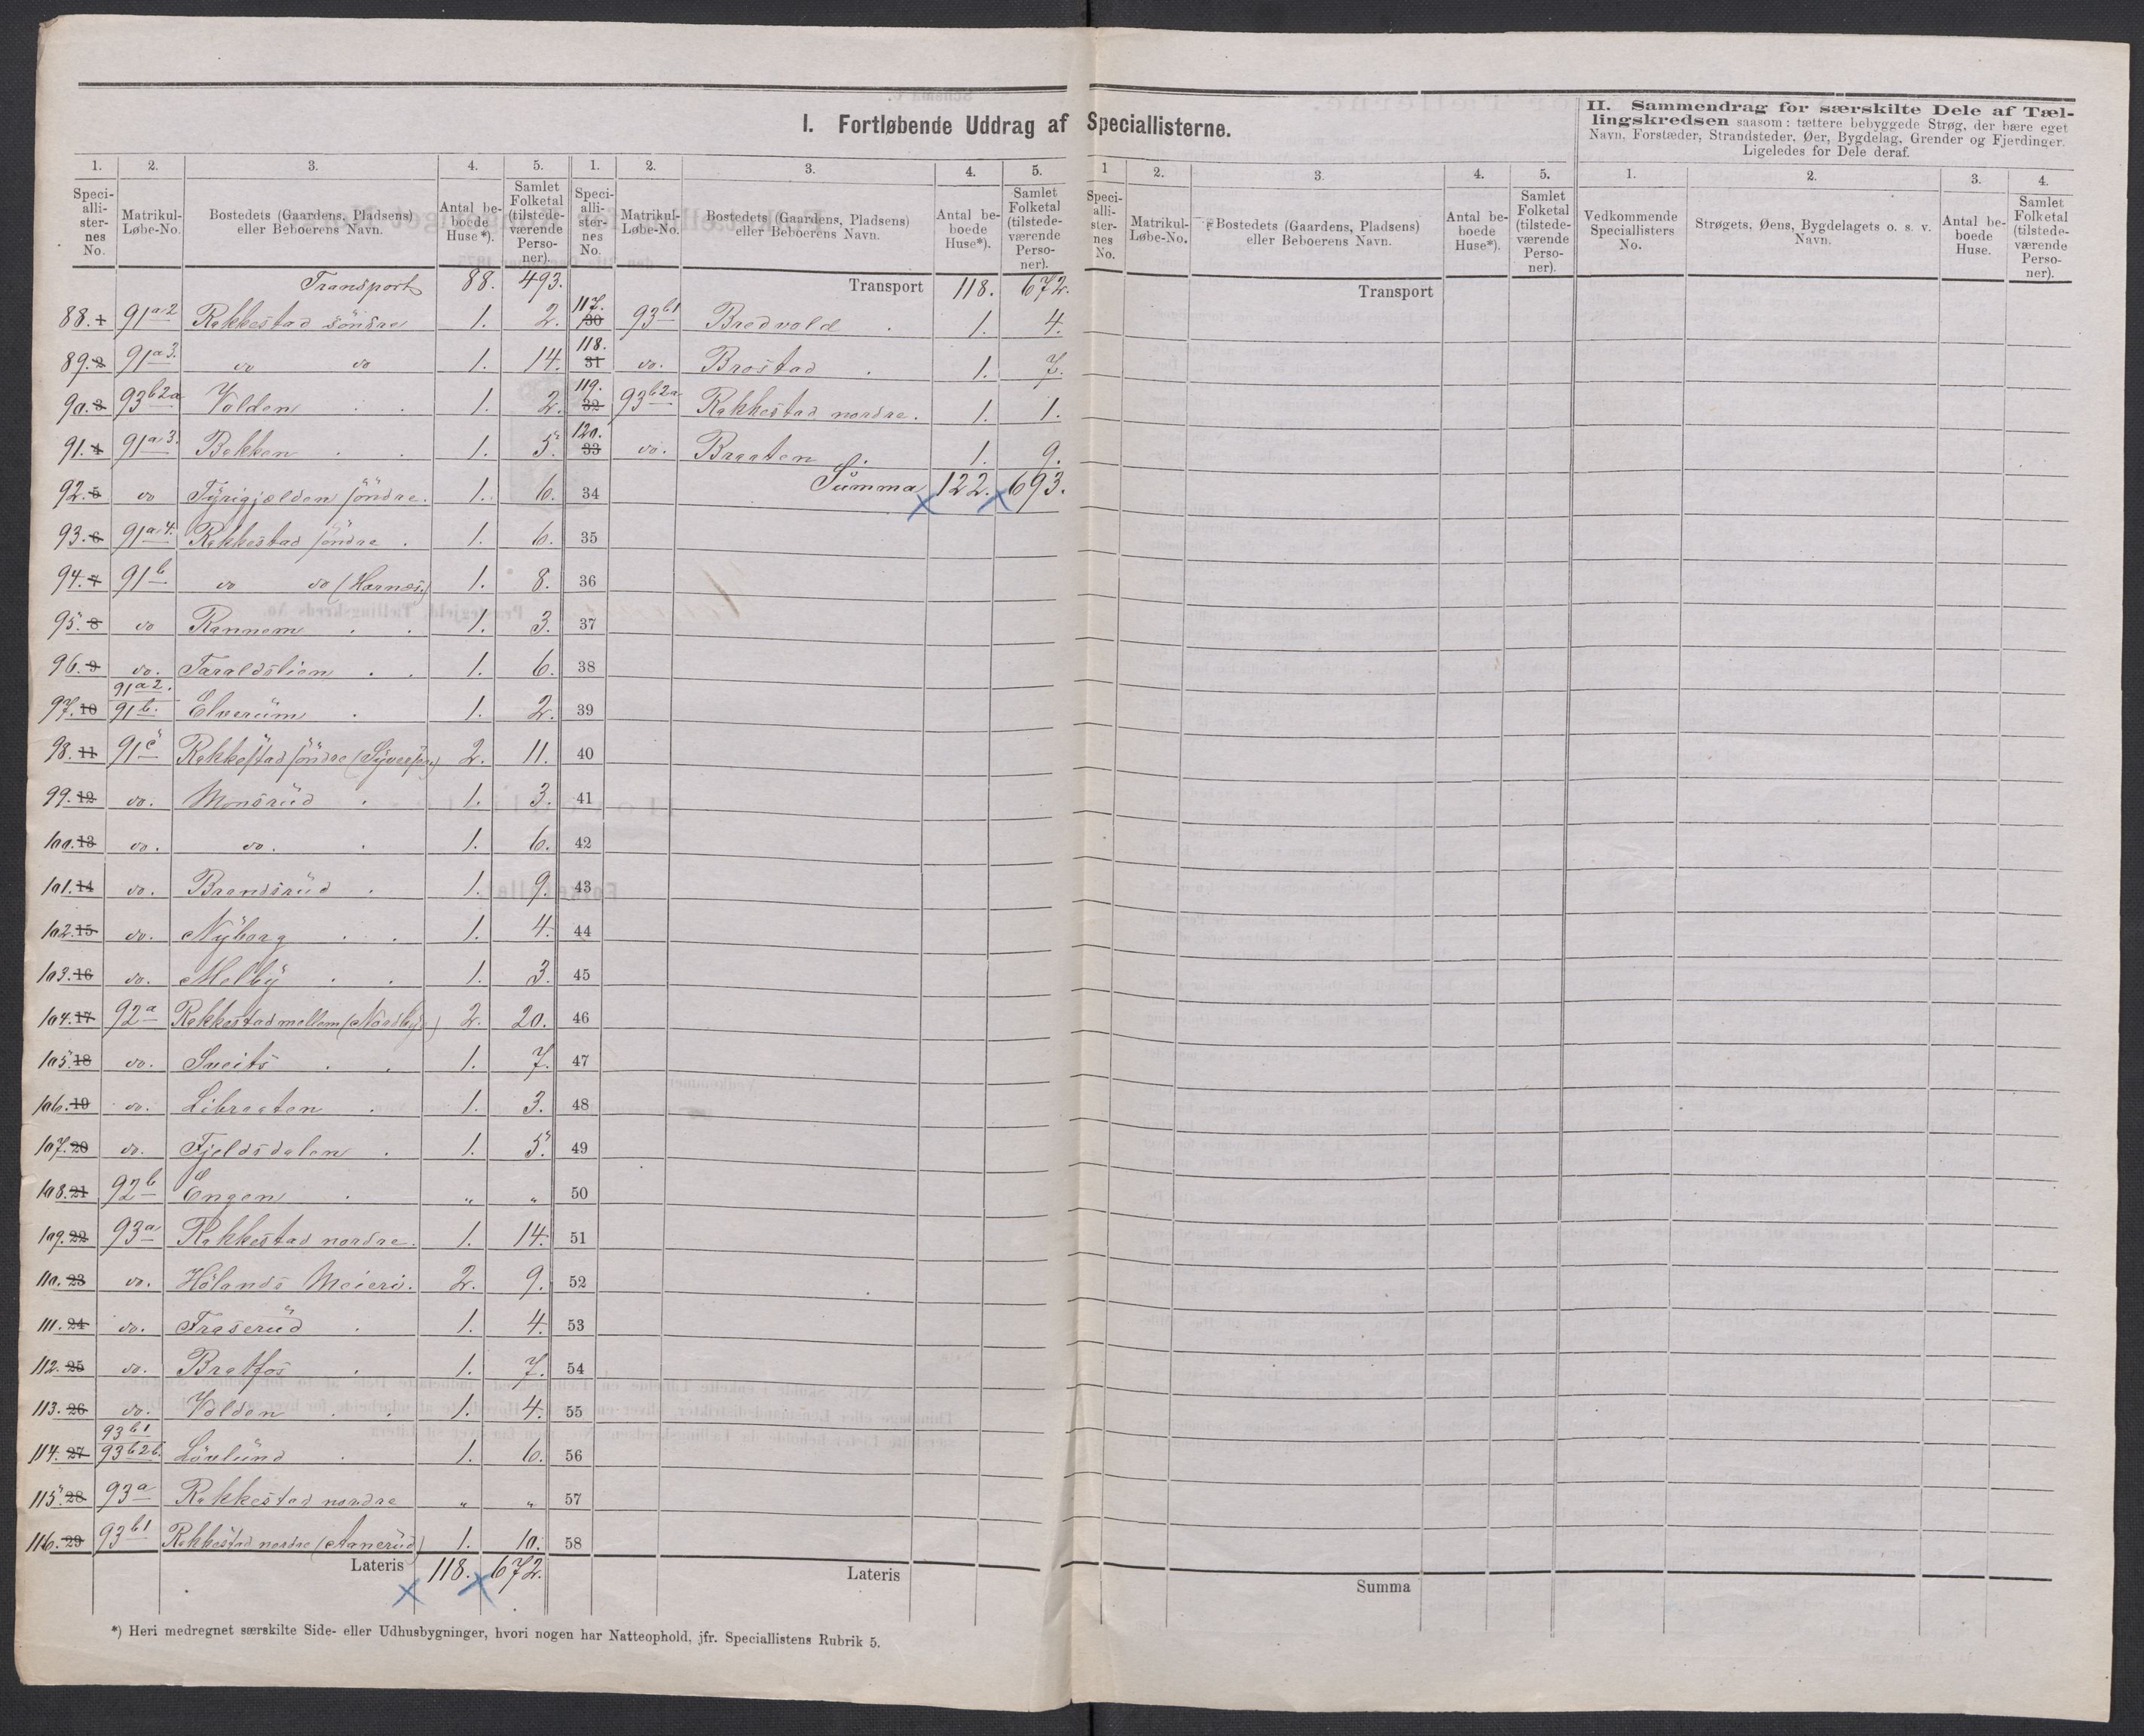 I. Fortløbende Uddrag af Speciallisterne.
II. Sammendrag for særskilte Dele af Tæl-
lingskredsen saasom: tættere bebyggede Strøg, der bære eget
Navn, Forstæder, Strandsteder, Øer, Bygdelag, Grender og Fjerdinger.
Ligeledes for Dele deraf.
1. 2. 3. 4. 5. 1. 2. 3. 4. 5. 1 2. 3. 4. 5. 1. 2. 3. 4.
Speci-alli-ster-nes No. Matrikul-Løbe-No. Bostedets (Gaardens, Pladsens) eller Beboerens Navn. Antal be-boede Huse*). Samlet Folketal (tilstede-værende Perso-ner).
Speci-alli-ster-nes No. Matrikul-Løbe-No. Bostedets (Gaardens, Pladsens) eller Beboerens Navn. Antal be-boede Huse*). Samlet Folketal (tilstede-værende Perso-ner).
Speci-alli-ster-nes No. Matrikul-Løbe-No. Bostedets (Gaardens, Pladsens) eller Beboerens Navn. Antal be-boede Huse*). Samlet Folketal (tilstede-værende Perso-ner).
Vedkommende Speciallisters No. Strøgets, Øens, Bygdelagets o. s. v. Navn. Antal be-boede Huse. Samlet Folketal (tilstede-værende Perso-ner).
Transport 88. 493.
88. 1 91a2 Rakkestad söndre 1. 2.
89. 2 91a3. do do 1. 14.
90. 3 93b2a Volden 1. 2.
91. 4 91a3. Bakken 1. 5.
92. 5 do Tyrigjælden söndre. 1. 6.
93. 6 91a4. Rakkestad söndre 1. 6.
94. 7 91b do do (Harnæs) 1. 8.
95. 8 do Rannem 1. 3.
96. 9 do. Taraldslien 1. 6.
97. 10 91a2. 91b. Elverum 1. 2.
98. 11 91c Rakkestad söndre 2. 11.
99. 12 do. Monsrud 1. 3.
100. 13 do. do. 1. 6.
101. 14 do. Brandsrud 1. 9.
102. 15 do. Nyborg 1. 4.
103. 16 do. Melby 1. 3.
104. 17 92a Rakkestad mellem (Nordby) 2. 20.
105. 18 do. Sneits 1. 7.
106. 19 do. Libraaten 1. 3.
107. 20 do. Fjeldsdalen 1. 5.
108. 21 92b Engen " "
109. 22 93a Rakkestad nordre. 1. 14.
110. 23 do. Hölands Meieri. 2. 9.
111. 24 do. Fraserud 1. 4.
112. 25 do. Bratfos 1. 7.
113. 26 do. Volden 1. 4.
114. 27 93b1 93b2b. Lövlund 1. 6.
115. 28 93a Rakkestad nordre " "
116. 29 93b1 Rakkestad nordre (Aanerud) 1. 10.
Lateris 118. 672.
Transport 118. 672.
117. 30 93b1 Bredvold 1. 4.
118. 31 do. Brostad 1. 7.
119. 32 93b2a Rakkestad nordre. 1. 1.
120. 33 do. Braaten 1. 9.
34 Summa 122. 693.
35
36
37
38
39
40
41
42
43
44
45
46
47
48
49
50
51
52
53
54
55
56
57
58
Lateris
Transport
Summa
*) Heri medregnet særskilte Side- eller Udhusbygninger, hvori nogen har Natteophold, jfr. Speciallistens Rubrik 5.